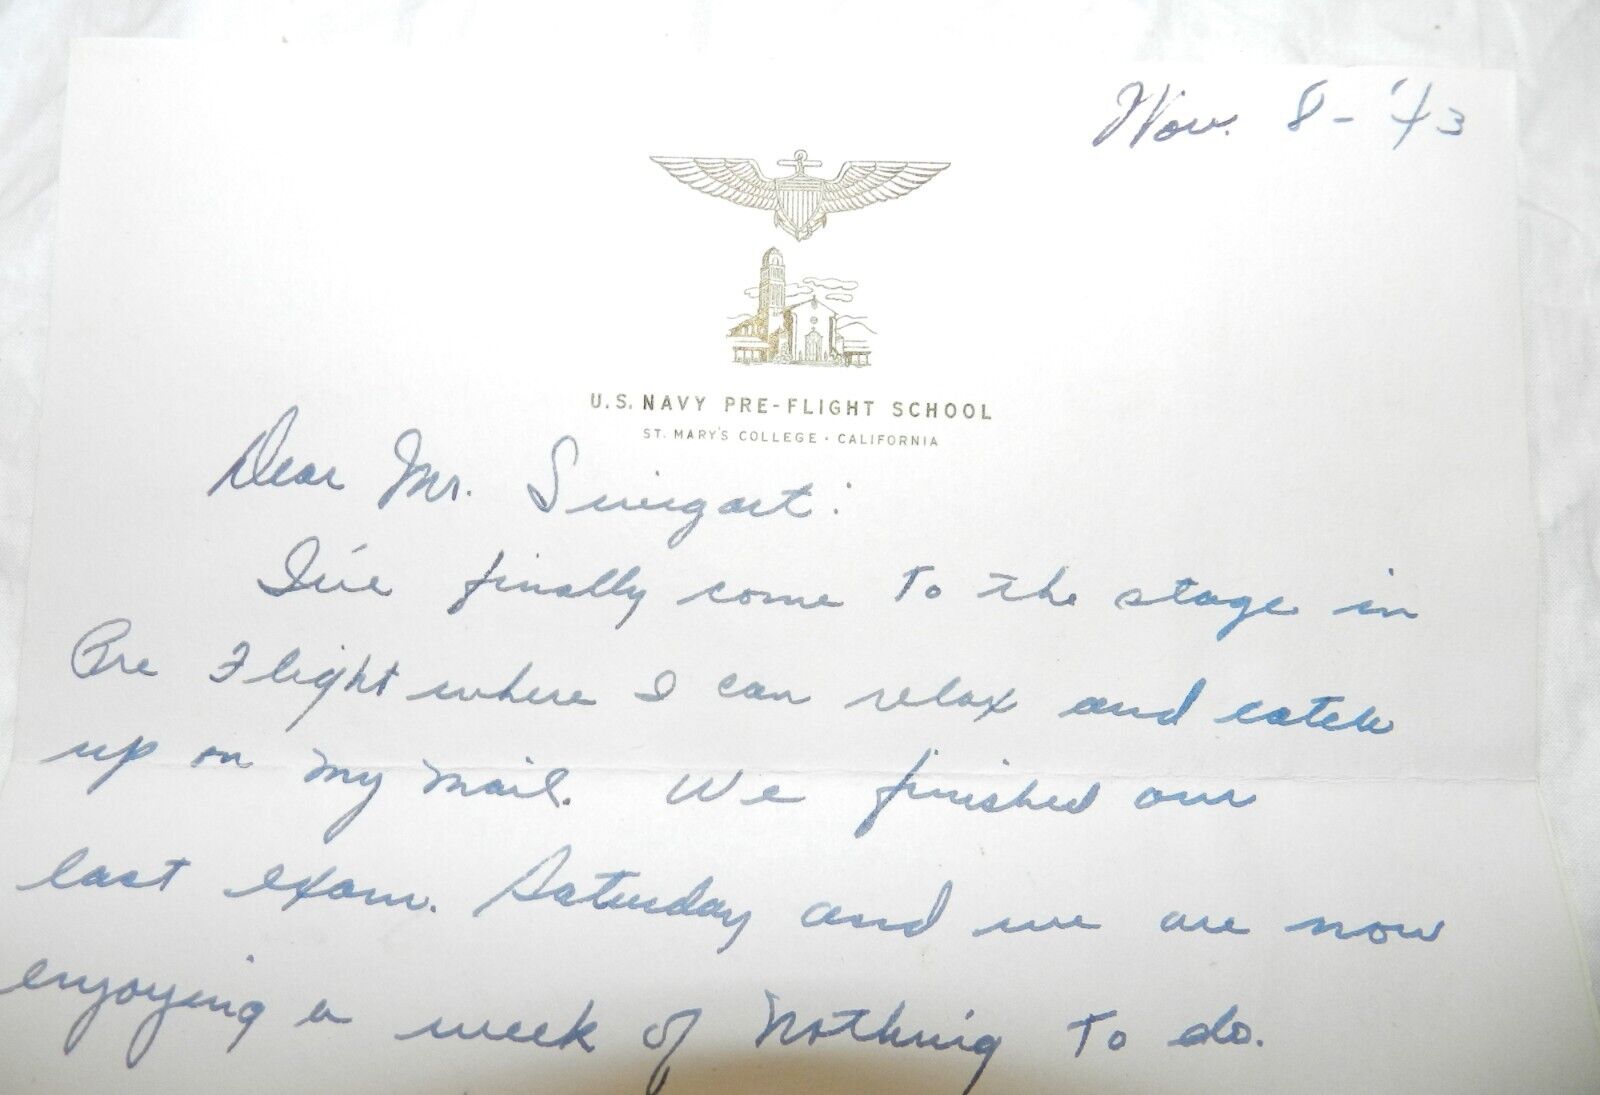 Nov. 8-'43
U.S. NAVY PRE-FLIGHT SCHOOL
ST. MARY'S COLLEGE · CALIFORNIA
Dear Mr. Swigart:
I've finally come to the stage in
Pre Flight where I can relax and catch
up on my mail. We finished our
last exam. Saturday and we are now
enjoying a week of nothing to do.